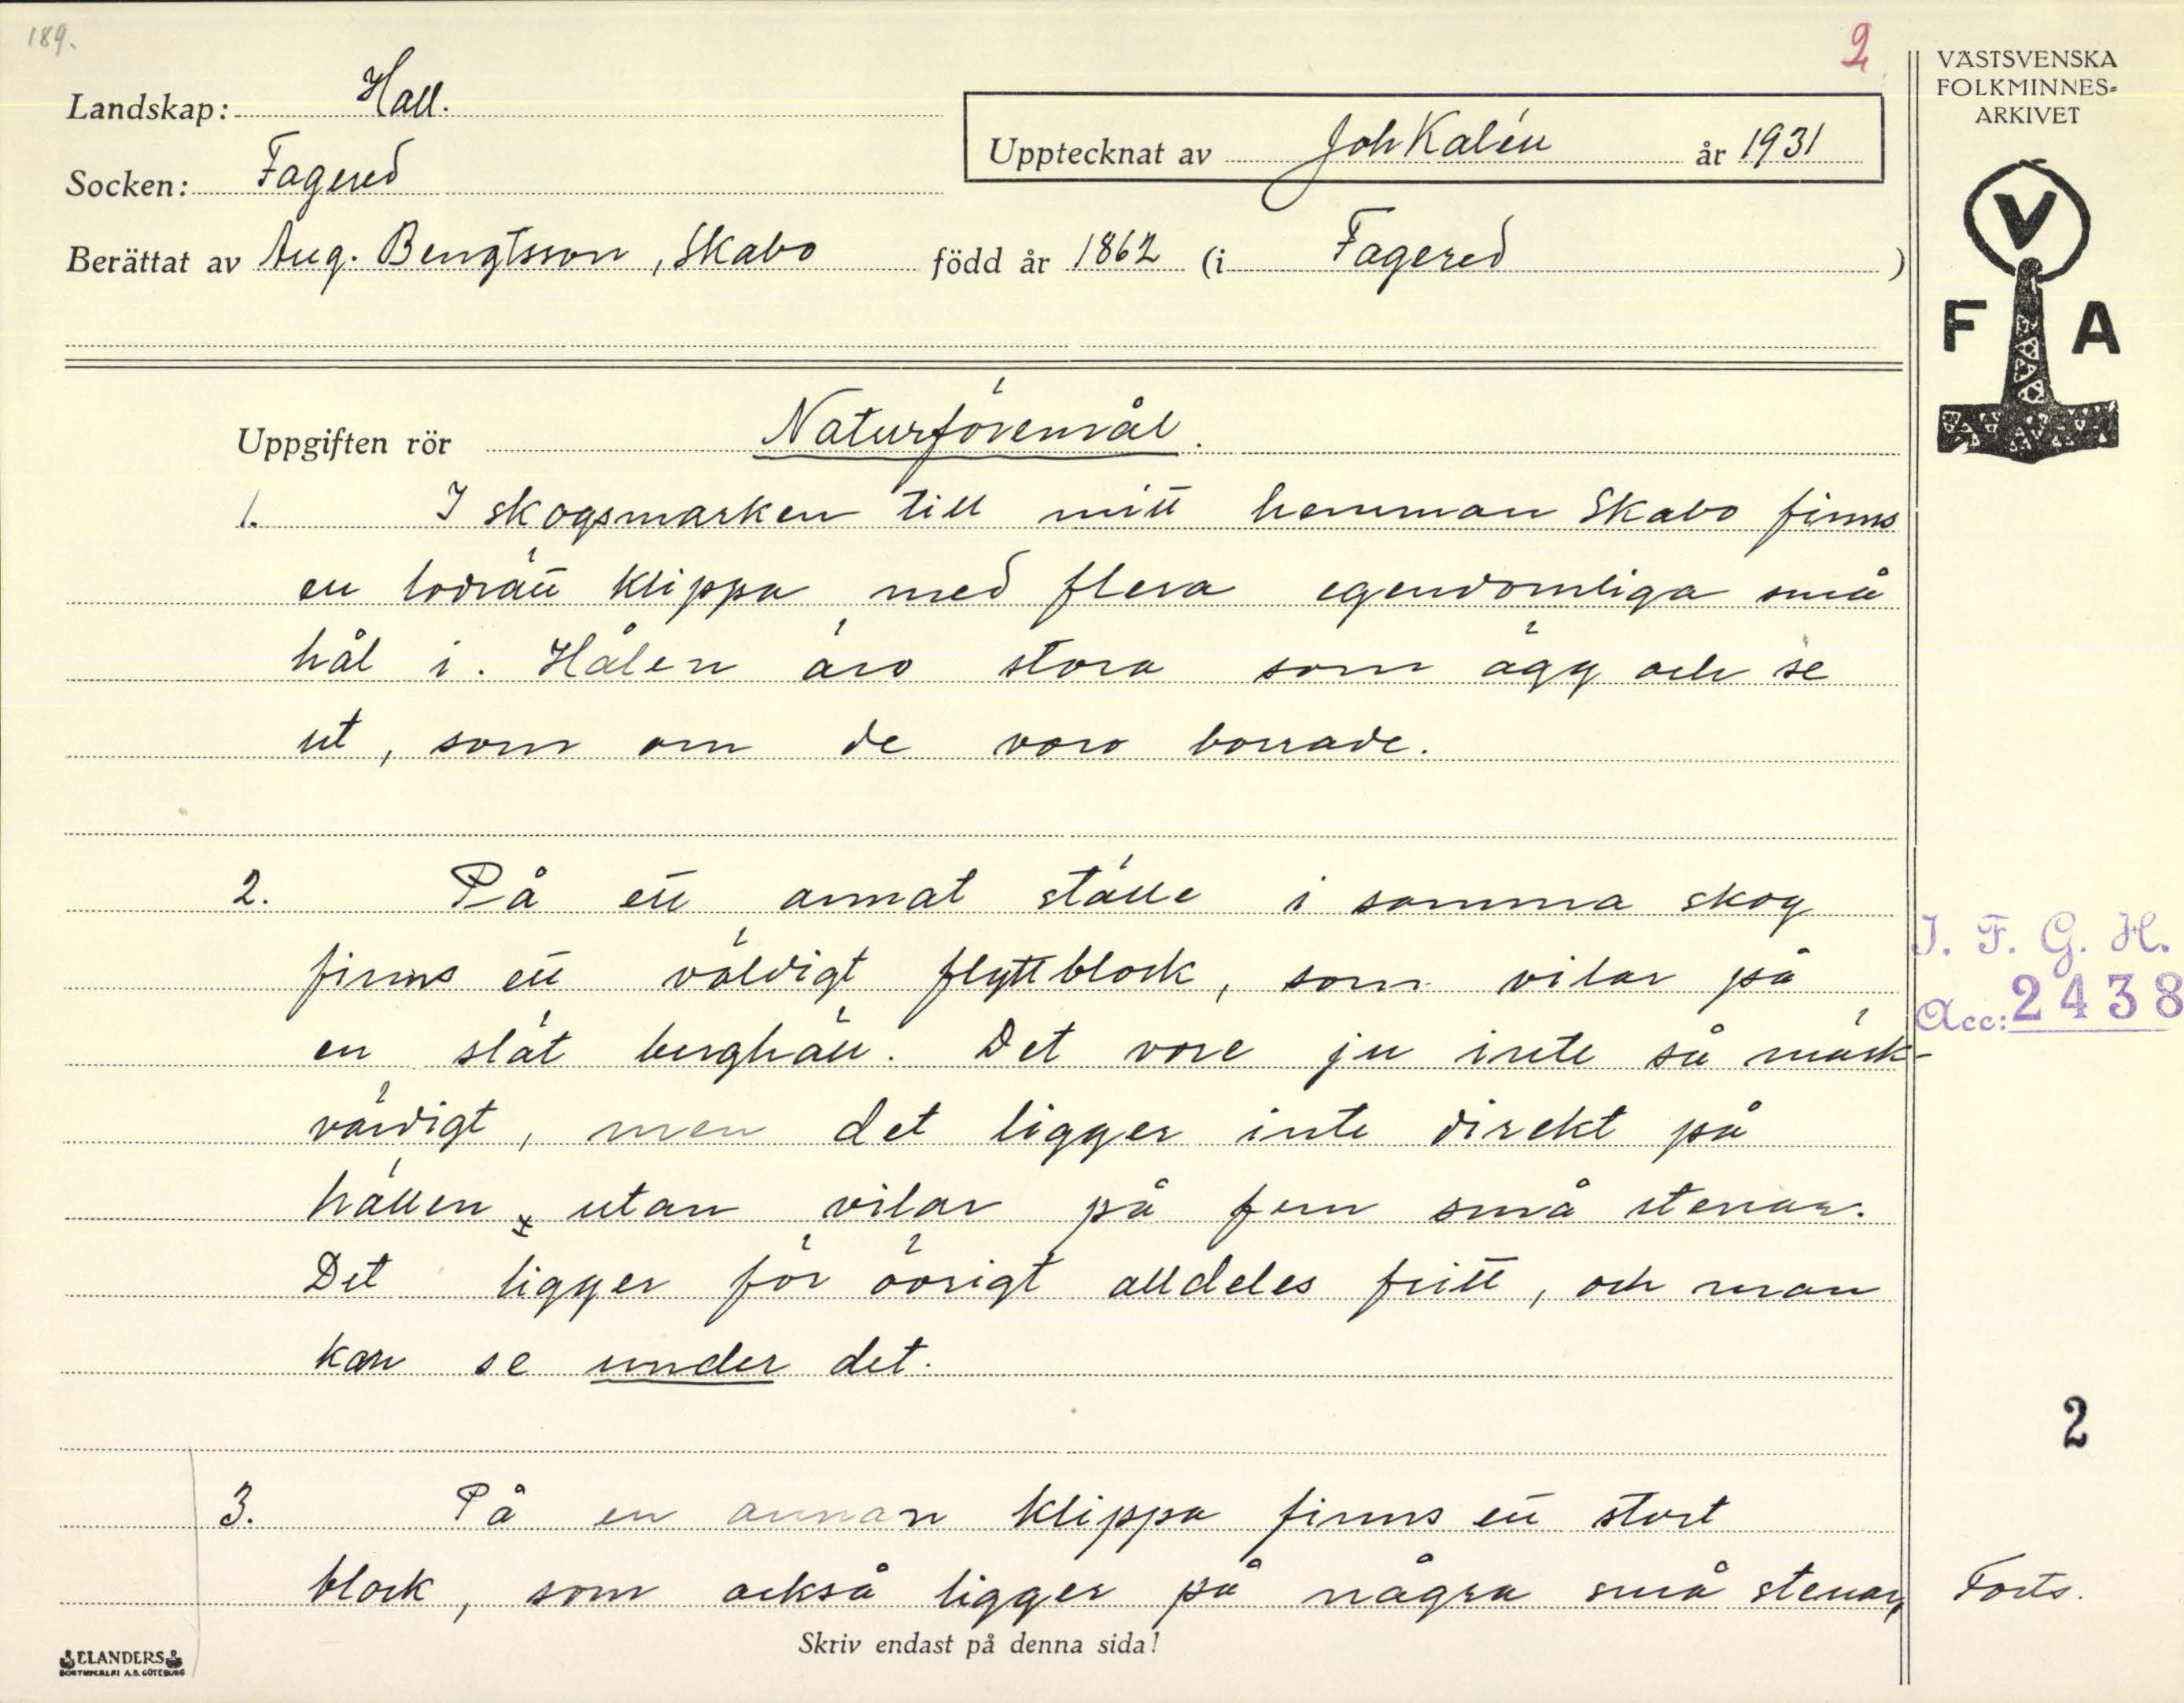 189.
2
VÄSTSVENSKA
FOLKMINNES-
ARKIVET
Landskap: Hall.
Upptecknat av Joh Kalén år 1931
Socken: Fagered
Berättat av Aug. Bengtsson, Skabo född år 1862 (i Fagered)
V
F A
Uppgiften rör Naturföremål.
1. I skogsmarken till mitt hemman Skabo finns
en lodrätt klippa med flera egendomliga små
hål i. Hålen äro stora som ägg och se
ut, som om de voro borrade.
2. På ett annat ställe i samma skog
finns ett väldigt flyttblock, som vilar på
en slät berghäll. Det vore ju inte så märk-
värdigt, men det ligger inte direkt på
hällen, utan vilar på fem små stenar.
Det ligger för övrigt alldeles fritt, och man
kan se under det.
I. F. G. H.
Acc: 2438
2
3. På en annan klippa finns ett stort
block, som också ligger på några små stenar,
Forts.
Skriv endast på denna sida!
ELANDERS
BOKTRYCKERI A.B. GÖTEBORG